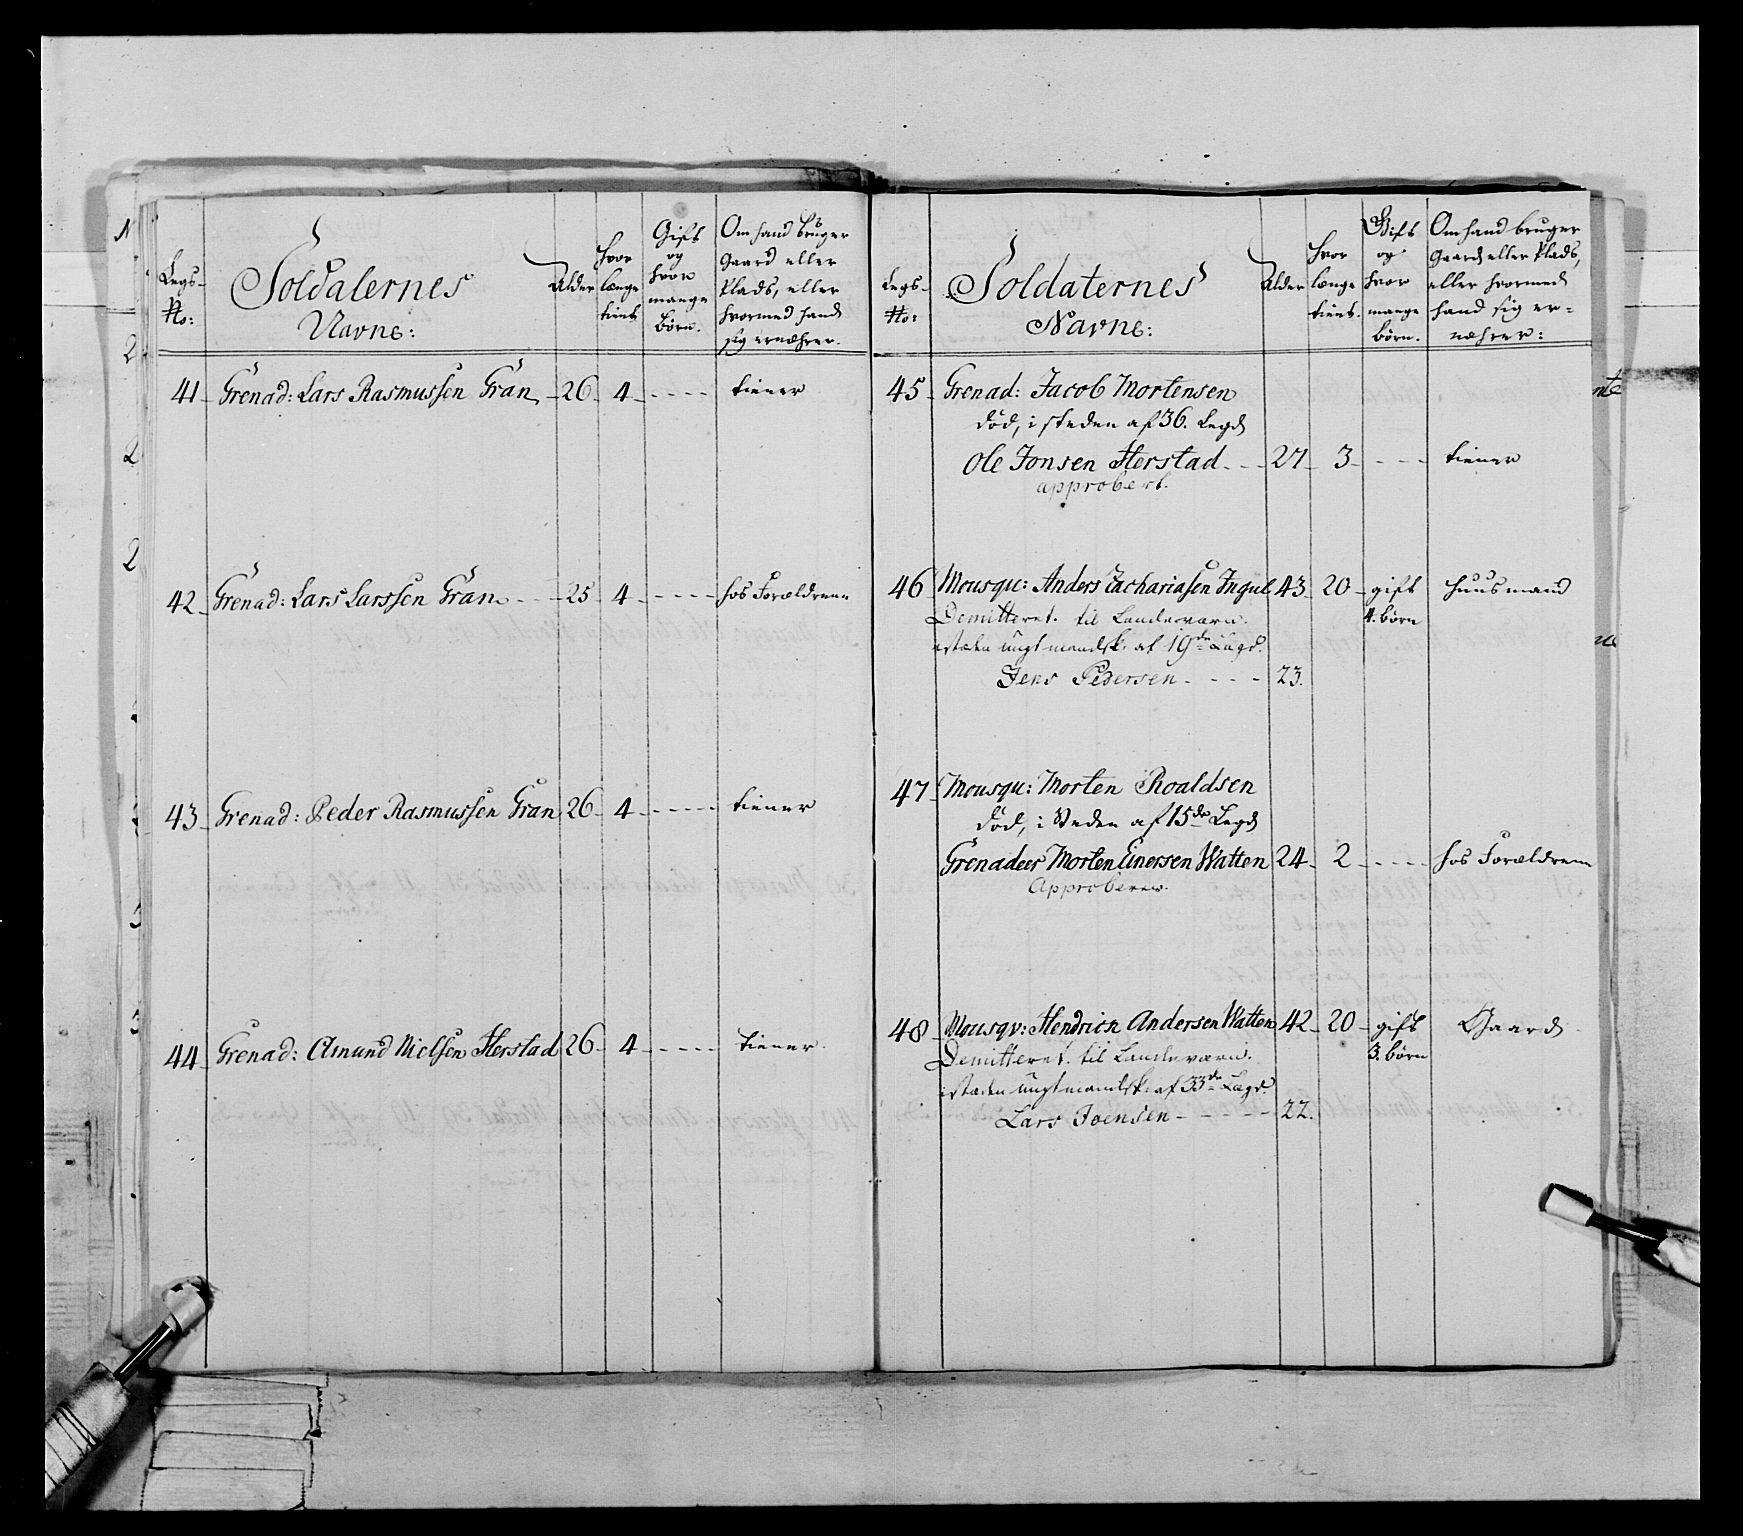 Legs-
No:
Soldaternes
Navne:
Alder
hvor
længe
tient
Gift
og
hvor
mange
børn.
Om hand bruger
Gaard eller
Plads, eller
hvormed hand
sig ernæhrer.
41 Grenad: Lars Rasmussen Gran 26 4 tiener
42 Grenad: Lars Larssen Gran 25 4 hos Forældrene
43 Grenad: Peder Rasmussen Gran 26 4 tiener
44 Grenad: Amund Nielsen Herstad 26 4 tiener
Legs-
No:
Soldaternes
Navne:
Alder
hvor
længe
tient.
Gift
og
hvor
mange
børn.
Om hand bruger
Gaard eller Plads,
eller hvormed
hand sig er-
næhrer:
45 Grenad: Jacob Mortensen
død, i steden af 36. Legd
Ole Jonsen Herstad 27 3 tiener
approbert.
46 Mousqu: Anders Zachariasen Ingul 43 20 gift huusmand
Demitteret til Landeværn. 4. børn
istæden ungt mandsk. af 19de Lægd.
Jens Pedersen 23.
47 Mousqu: Morten Roaldsen
død, i Steden af 15de Legd
Grenadeer Morten Einersen Watten 24 2 hos Forældrene
48 Mousqv: Hendrich Andersen Watten 42 20 gift Gaard
Demitteret til Landeværn. 3. børn
istæden ungt mandsk: af 33de Lægd.
Lars Joensen 22.